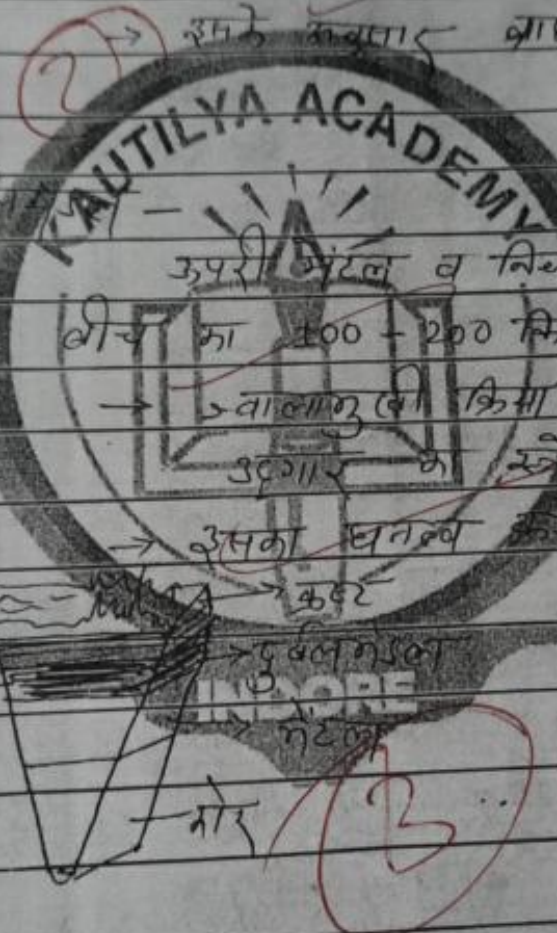 2
→ इसके अनुसार
KAUTILYA ACADEMY
ऊपरी मेंटल व
बीच का 100 - 200 कि
→ ज्वालामुखी क्रिया
उद्गार का
→ इसका घनत्व
→ क्रस्ट
→ दुर्बलमंडल
INDORE
→ मेंटल
- कोर
3